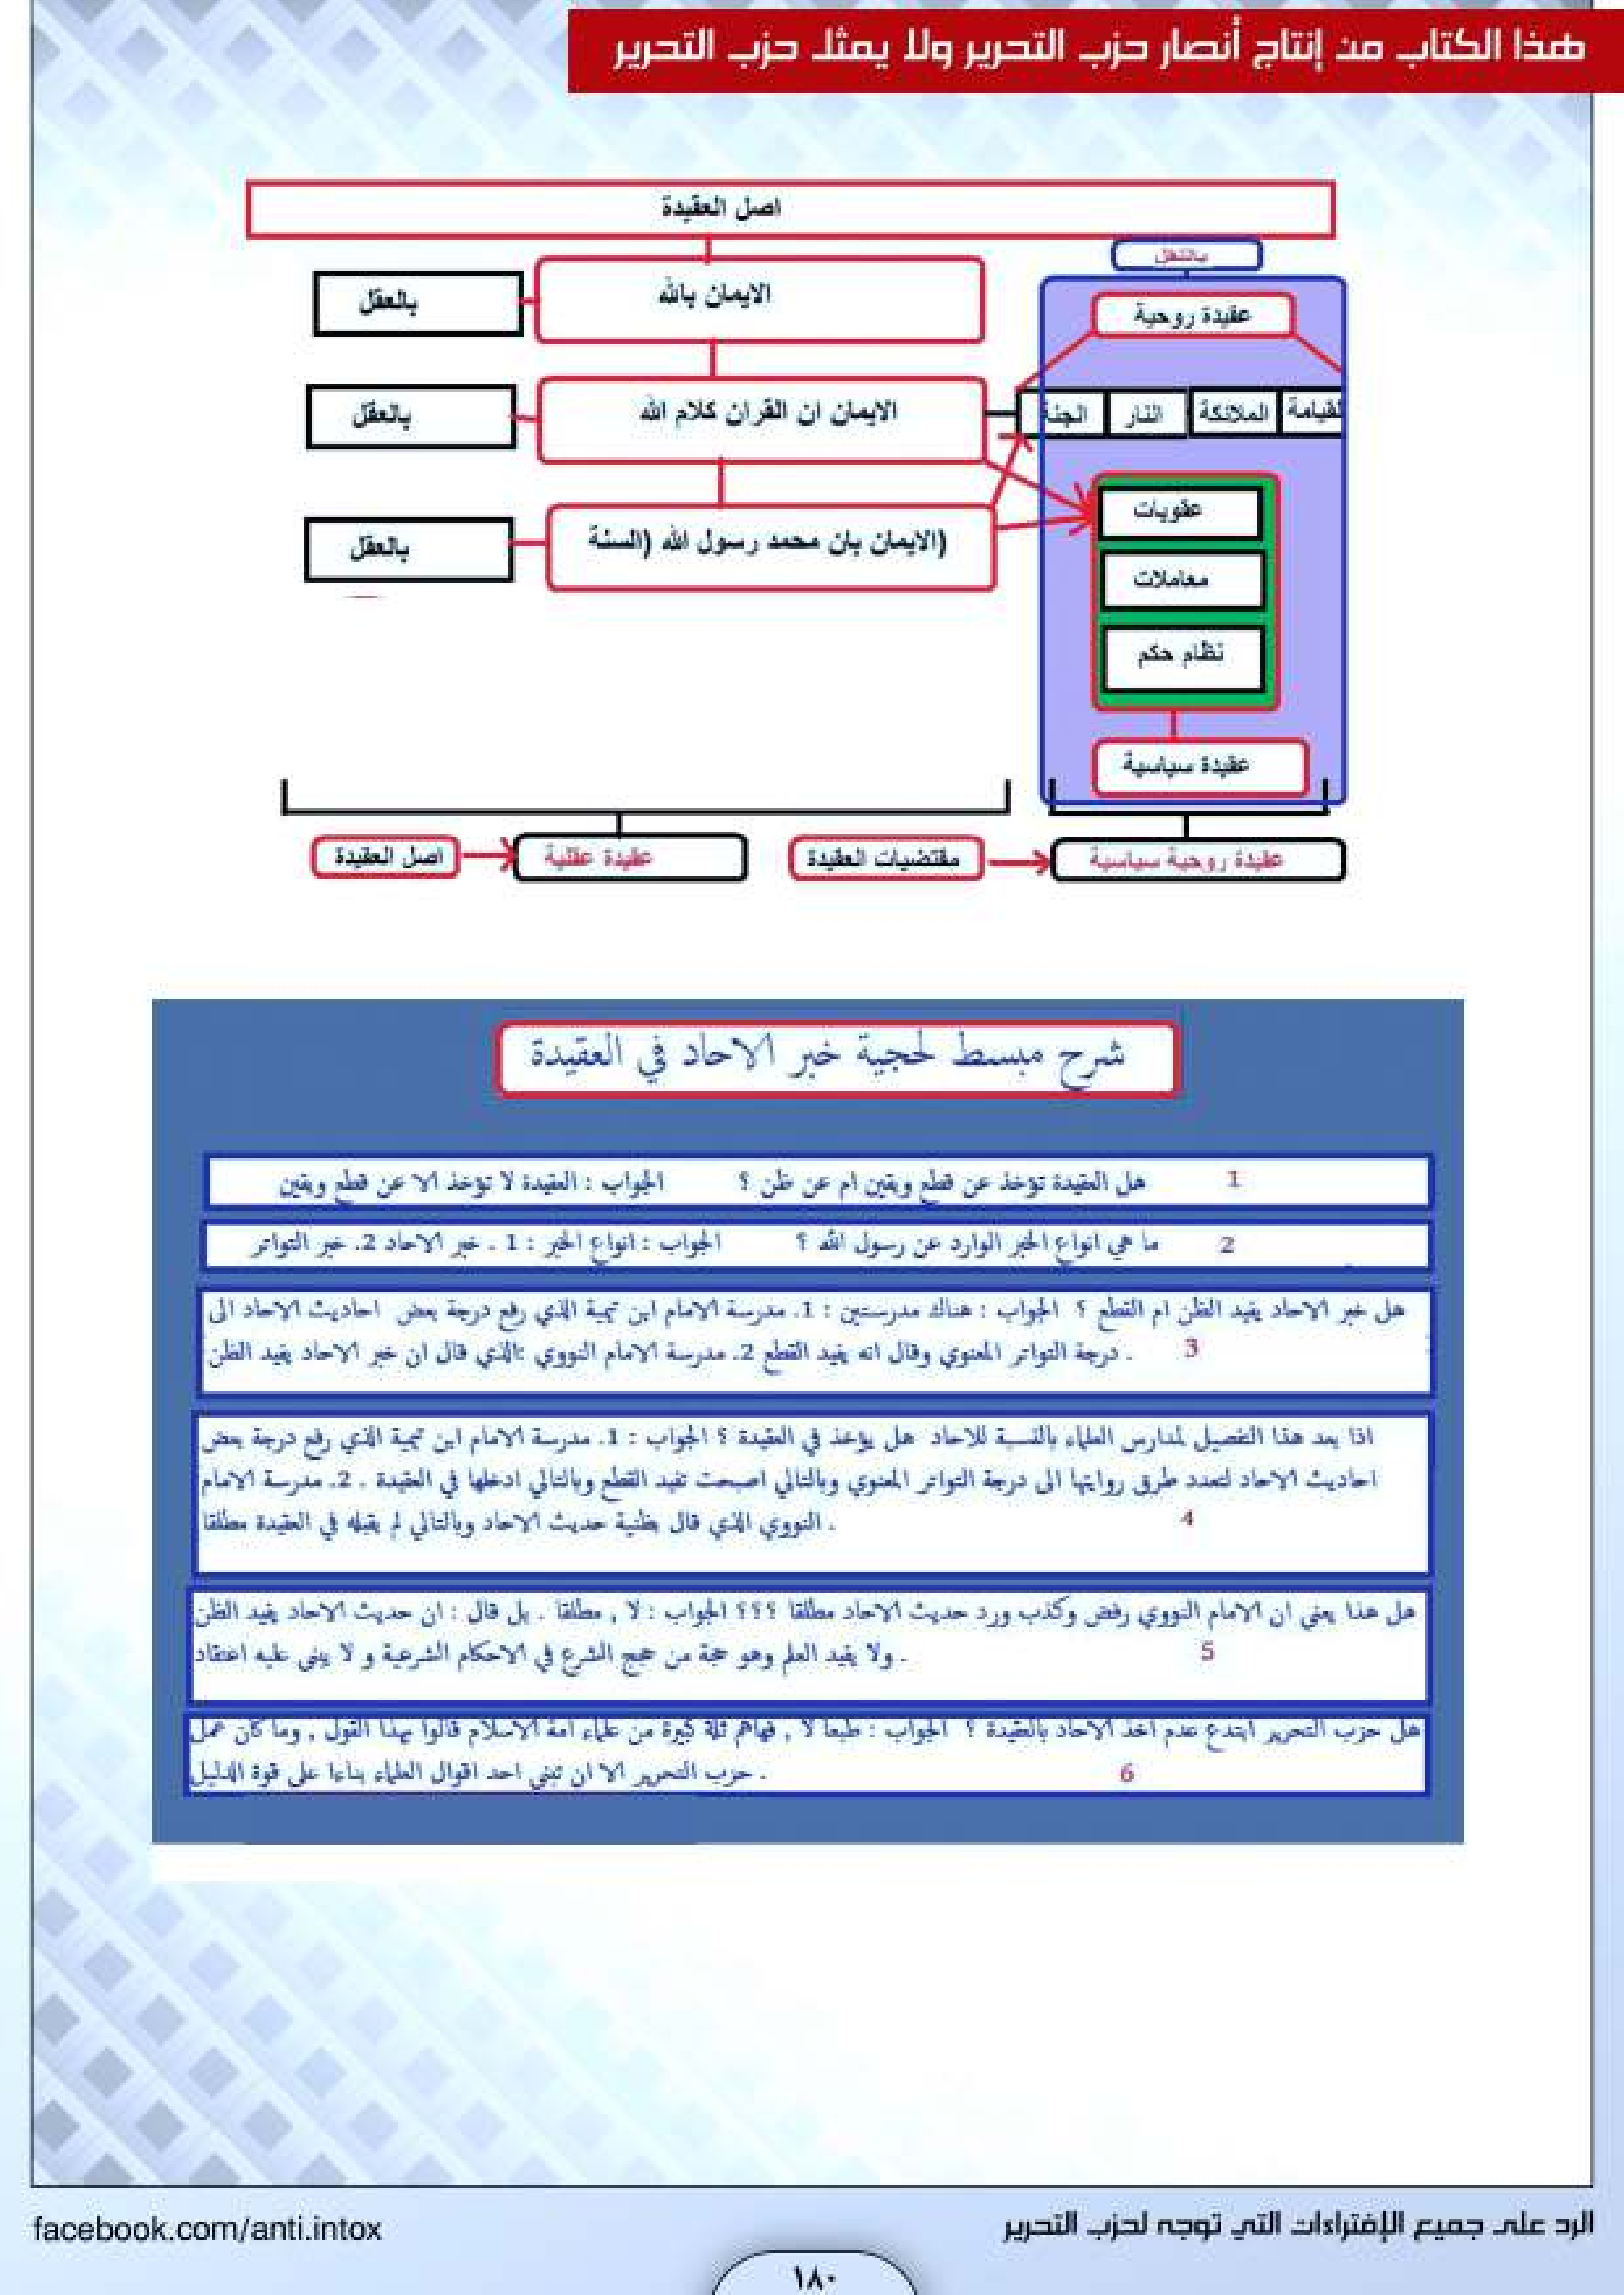 هذا الكتاب من إنتاج أنصار حزب التحرير ولا يمثل حزب التحرير
اصل العقيدة
بالنقل
الايمان بالله
بالعقل
عقيدة روحية
الايمان ان القران كلام الله
بالعقل
القيامة
الملائكة
النار
الجنة
(الايمان بان محمد رسول الله (السنة
بالعقل
عقوبات
معاملات
نظام حكم
عقيدة سياسية
عقيدة روحية سياسية
مقتضيات العقيدة
عقيدة عقلية
اصل العقيدة
شرح مبسط لحجية خبر الاحاد في العقيدة
1 هل العقيدة تؤخذ عن قطع ويقين ام عن ظن ؟ الجواب : العقيدة لا تؤخذ الا عن قطع ويقين
2 ما هي انواع الخبر الوارد عن رسول الله ؟ الجواب : انواع الخبر : 1 . خبر الاحاد 2. خبر التواتر
هل خبر الاحاد يفيد الظن ام القطع ؟ الجواب : هناك مدرستين : 1. مدرسة الامام ابن تيمية الذي رفع درجة بعض احاديث الاحاد الى
3 . درجة التواتر المعنوي وقال انه يفيد القطع 2. مدرسة الامام النووي :الذي قال ان خبر الاحاد يفيد الظن
اذا بعد هذا التفصيل لمدارس العلماء بالنسبة للاحاد هل يؤخذ في العقيدة ؟ الجواب : 1. مدرسة الامام ابن تيمية الذي رفع درجة بعض
احاديث الاحاد لتعدد طرق روايتها الى درجة التواتر المعنوي وبالتالي اصبحت تفيد القطع وبالتالي ادخلها في العقيدة . 2. مدرسة الامام
4 . النووي الذي قال بظنية حديث الاحاد وبالتالي لم يقبله في العقيدة مطلقا
هل هذا يعني ان الامام النووي رفض وكذب ورد حديث الاحاد مطلقا ؟؟؟ الجواب : لا , مطلقا . بل قال : ان حديث الاحاد يفيد الظن
5 . ولا يفيد العلم وهو حجة من حجج الشرع في الاحكام الشرعية و لا يبنى عليه اعتقاد
هل حزب التحرير ابتدع عدم اخذ الاحاد بالعقيدة ؟ الجواب : طبعا لا , فهاهم ثلة كبيرة من علماء امة الاسلام قالوا بهذا القول , وما كان عمل
6 . حزب التحرير الا ان تبنى احد اقوال العلماء بناءا على قوة الدليل
الرد على جميع الإفتراءات التي توجه لحزب التحرير
facebook.com/anti.intox
١٨٠